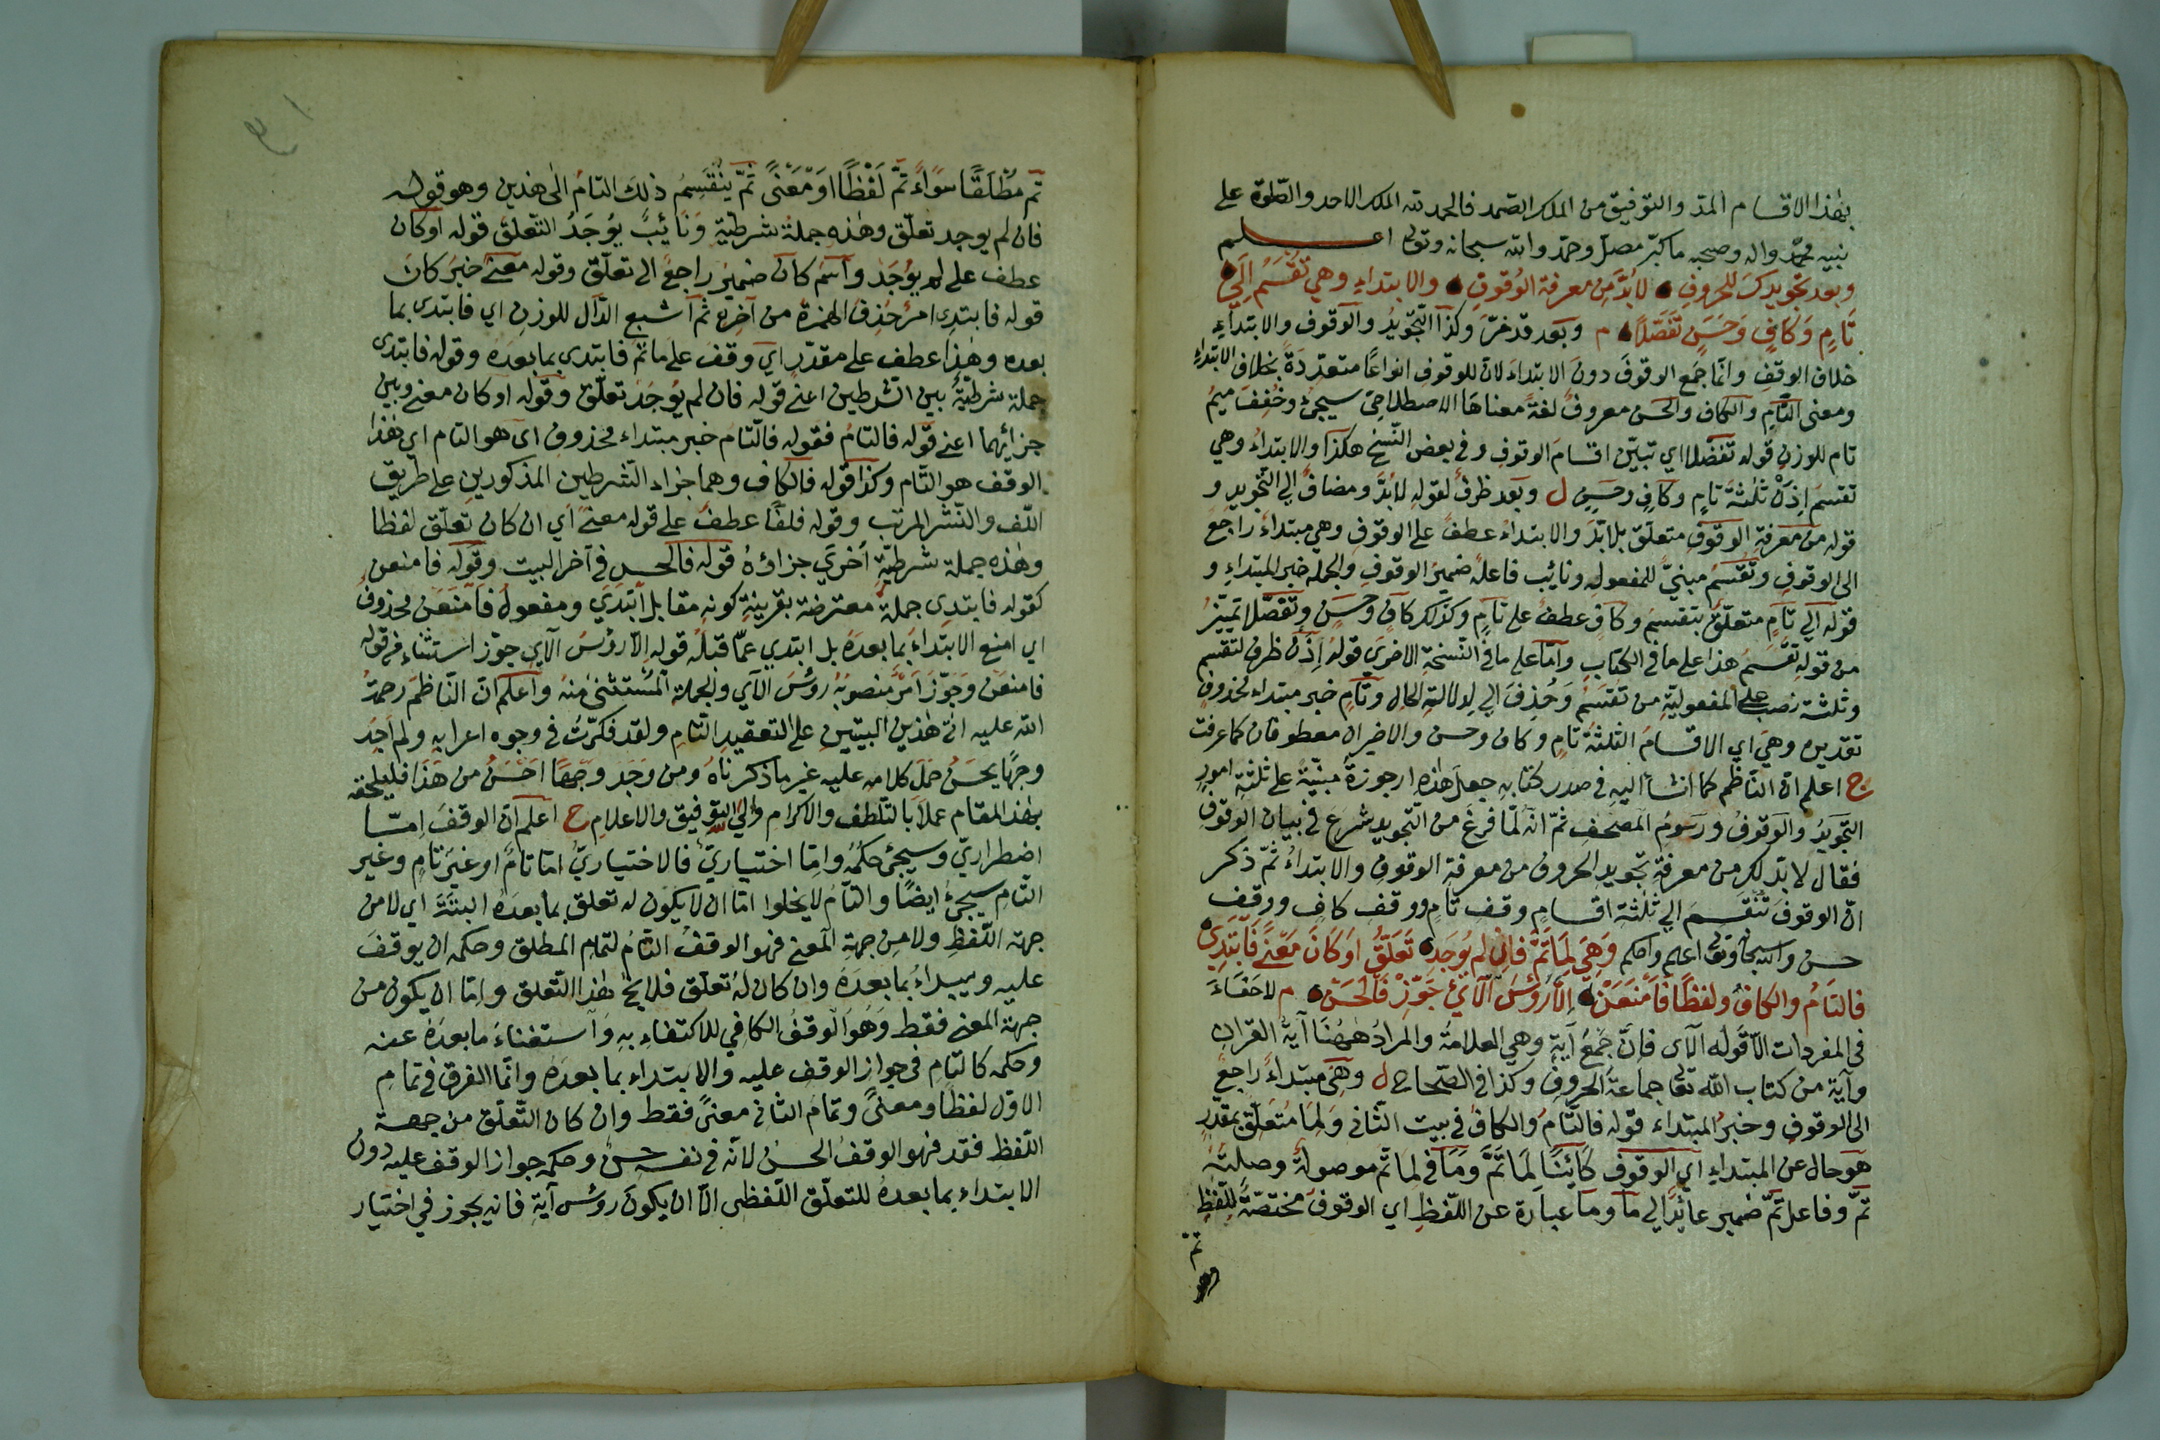 بهذا الاقسام المذ والتوفيق من الملك الصمد فالحمد لله الملك الاحد والصّلوة على
نبيه محمّد واله وصحبه ما كبّر مصلّ وحمّد والله سبحانه وتعالى اعلم
وبعد تجويدك للحروف لابُدَّ مِن معرفة الوُقوفِ والابتداءِ وهي تُقْسَمُ اِلَى
تَامٍ وَكَافٍ وَحَسَنٍ تَفَصُّلًا م وبَعد قد مرّ وكذا التّجويدُ والوقوف والابتداءِ
خلاف الوقف وانّما جُمع الوقوفَ دونَ الابتداءَ لانّ للوقوفِ انواعًا متعدّدَةً بخلافِ الابتداءِ
ومعنى التَّامِ والكاف والحسن معروفٌ لغةً معناهَا الاصطلاحيّ سيجئ وخُفِفَ ميمُ
تام للوزنِ قوله تفصّلا اي تبيّن اقسامَ الوقوفِ وفي بعض النّسخ هكذا والابتداءُ وهي
تقسَم اِذَنْ ثلثةً تامٍ وكافٍ وحسنٍ ل وبَعد ظرفٌ لقولهِ لابُدَّ ومضافٌ الى التّجويدِ و
قوله من مَعرفةِ الوقوفِ متعلّق بلابُدَّ والابتداءُ عطف على الوقوفِ وهي مبتداءٌ راجعٌ
الى الوقوفِ وتُقْسَمُ مبنيٌّ للمفعوله ونايب فاعلهُ ضميرُ الوقوفِ والجمله خبر المبتداءِ و
قوله الى تامٍ متعلّقٌ بتقسم وكافٍ عطف على تامٍ وكذلك كافٍ وحسنٍ وتفصّلا تمييزٌ
من قوله تقسمُ هذا على ما في الكتابِ وامّا على ما في النّسخةِ الاخرى قولهُ اِذَنْ ظرف لتقسم
وثلثة نصب على المفعوليّة من تقسَمُ وحُذِفَ الى لدلالةِ الحالِ وتامٍ خبر مبتداء محذوفٍ
تقديره وهي اي الاقسامُ الثلثةُ تامٍ وكان وحسن والاخيران معطوفان كما عرفت
ح اعلم انّ النّاظم كما اشا اليهِ في صدر كتابهِ جعلَ هذهِ ارجوزةً مبنيّةً على ثلثةِ امورٍ
التّجويدُ والوقوفُ ورسومُ المصحفِ ثمّ انّه لمّا فرغ من التّجويد شرَعَ في بيانِ الوقوفِ
فقال لا بدّ لك من معرفةِ تجويدِ الحروفِ من معرفةِ الوقوفِ والابتداءُ ثمّ ذكر
انّ الوقوفَ تنْقسمَ الى ثلثةِ اقسامٍ وقف تامٍ ووقف كافٍ ووقف
حسن والله سبحانه وتعالى اعلم واحكم وَهِيَ لِمَا تَمَّ فَاِنْ لم يُوجَدِ تَعَلُّقٌ اَوْ كَانَ مَعْنًى فَابْتَدِى
فالتَامُ والكافُ ولفظًا فَامْنَعَنْ اِلّا رُؤُسُ الْآىِ جَوِّزْ فَالْحَسَنْ م لا خفاءَ
في المفردات الّا قوله الآى فانّ جَمْعُ آيةٍ وهي العلامةُ والمرادُ ههُنَا آيةُ القرانِ
وآيةٍ من كتاب الله تعا جماعةُ الحروفِ وكذا في الصّحاح ل وهِيَ مبتداءٌ راجعٌ
الى الوقوفِ وخبرُ المبتداء قوله فالتّامُ والكافُ في بيت الثّانى ولِمَا مُتَعلّق بمقدّرٍ
هو حال عن المبتداءِ اي الوقوف كَائِنًا لِمَا تَمَّ وَمَا في لما تمّ موصولةٌ وصلتُهُ
تمَّ وفاعل تَمّ ضمير عائدٌ الى مَا ومَا عبارة عن اللّفظِ اي الوقوفَ مختصّةٌ للّفظِ
تمّ
تم مُطْلَقًا سوَاءً تمَّ لَفْظًا او مَعْنىً ثمّ يَنْقَسِمُ ذلِكَ التامُ الى هذين وهو قوله
فان لم يوجد تعلّق وهذه جملة شرطيّة ونايبُ يُوجَدُ التّعلّق قوله اوكان
عطف على لم يُوجَد وآسمُ كان ضمير راجعٌ الى تعلّق وقوله معنًى خبرُ كانَ
قوله فابتدى امرٌ حُذِفَ الهمزةُ من آخرهِ ثم آشبع الدّال للوزنِ اي فابتدى بما
بعده وهذا عطف على مقدّرٍ اي وقف على ماتمّ فابتدى بما بعدَهُ وقوله فابتدى
جملة شرطيّةٌ بين الشّرطين اعنى قوله فان لم يُوجَد تعلّق وقوله او كان معنى وبين
جزائهما اعنى قوله فالتامُ فقوله فالتّامُ خبر مبتداء محذوف اى هو التام اى هذا
الوقف هو التّام وكذا قوله فالكاف وهما جزاء الشرطين المذكورين على طريق
اللّف والنّشر المرتب وقوله فلفظًا عطفٌ على قوله معنىً اي ان كان تعلّق لفظا
وهذه جملة شرطيّةٍ اُخرىَ جزاؤهُ قوله فالحسن في آخر البيت وقوله فامنعن
كقوله فابتدى جملةٌ معترضة بقرينةِ كونهِ مقابل ابتَدى ومفعولُ فَامْنَعَن محذوفٌ
اى امنع الابتداءَ بِما بعدَهُ بل ابتدي عمّا قبلهُ قوله الّا رؤسُ الآي جوّز استثناء من قوله
فامنعَن وَجَوّز اَمرٌ منصوبُهُ رؤُسَ الآي والجملةُ المُستثنى منهُ واعلم انّ النّاظمَ رحمةُ
الله عليه اتى هذين البيتينِ على التعقيدِ التّامِ ولقد فكرّتُ في وجوه اعرابهِ ولم اَجِد
وجهًا يحسَنُ حَملَ كلامهِ عليه غير ما ذكرناهُ ومن وَجَد وجهًا احْسَنُ من هَذَا فليلحقه
بهذ المقام عملاً بالتّلطف والاكرام والى التوفيق والاعلام ح اعلم انّ الوقفَ امّا
اضطراريّ وسيجئ حكمُهُ وامّا اختياريّ فالاختياريُّ امّا تامٌ او غيرُ تامٍ وغير
التّام سيجئ ايضًا والتّامُ لا يخلوا امّا ان لا يكون له تعلق بما بعدَهُ البتّةَ اي لا من
جهة اللّفظِ ولا من جهةِ المعنى فهو الوقفُ التامُ لتمامِ المطلقِ وحكمه ان يوقفَ
عليه ويبداءُ بما بعدَهُ وان كان لهُ تعلّق فلا يخ هذا التّعلق وامّا ان يكونَ من
جهةِ المعنى فقط وَهُوَ الوقفُ الكافي للاكتفاءِ بهِ وَاستغناءَ ما بعدَهُ عنه
وحكمه كالتامِ في جوازِ الوقف عليه والابتداءِ بما بعدَهُ وانّما الفرق في تمامِ
الاوّل لفظًا ومعنىً وتمامُ الثاني معنىً فقط وان كان التّعلّق من جهة
اللّفظ فقد فهو الوقفُ الحسنُ لانّه في نفسه حسنٌ وحكمه جواز الوقف عليه دون
الابتداء بما بعدهُ للتعلّق اللّفظى الّا ان يكونَ رؤسَ آيةٍ فانه يجوز في اختيار